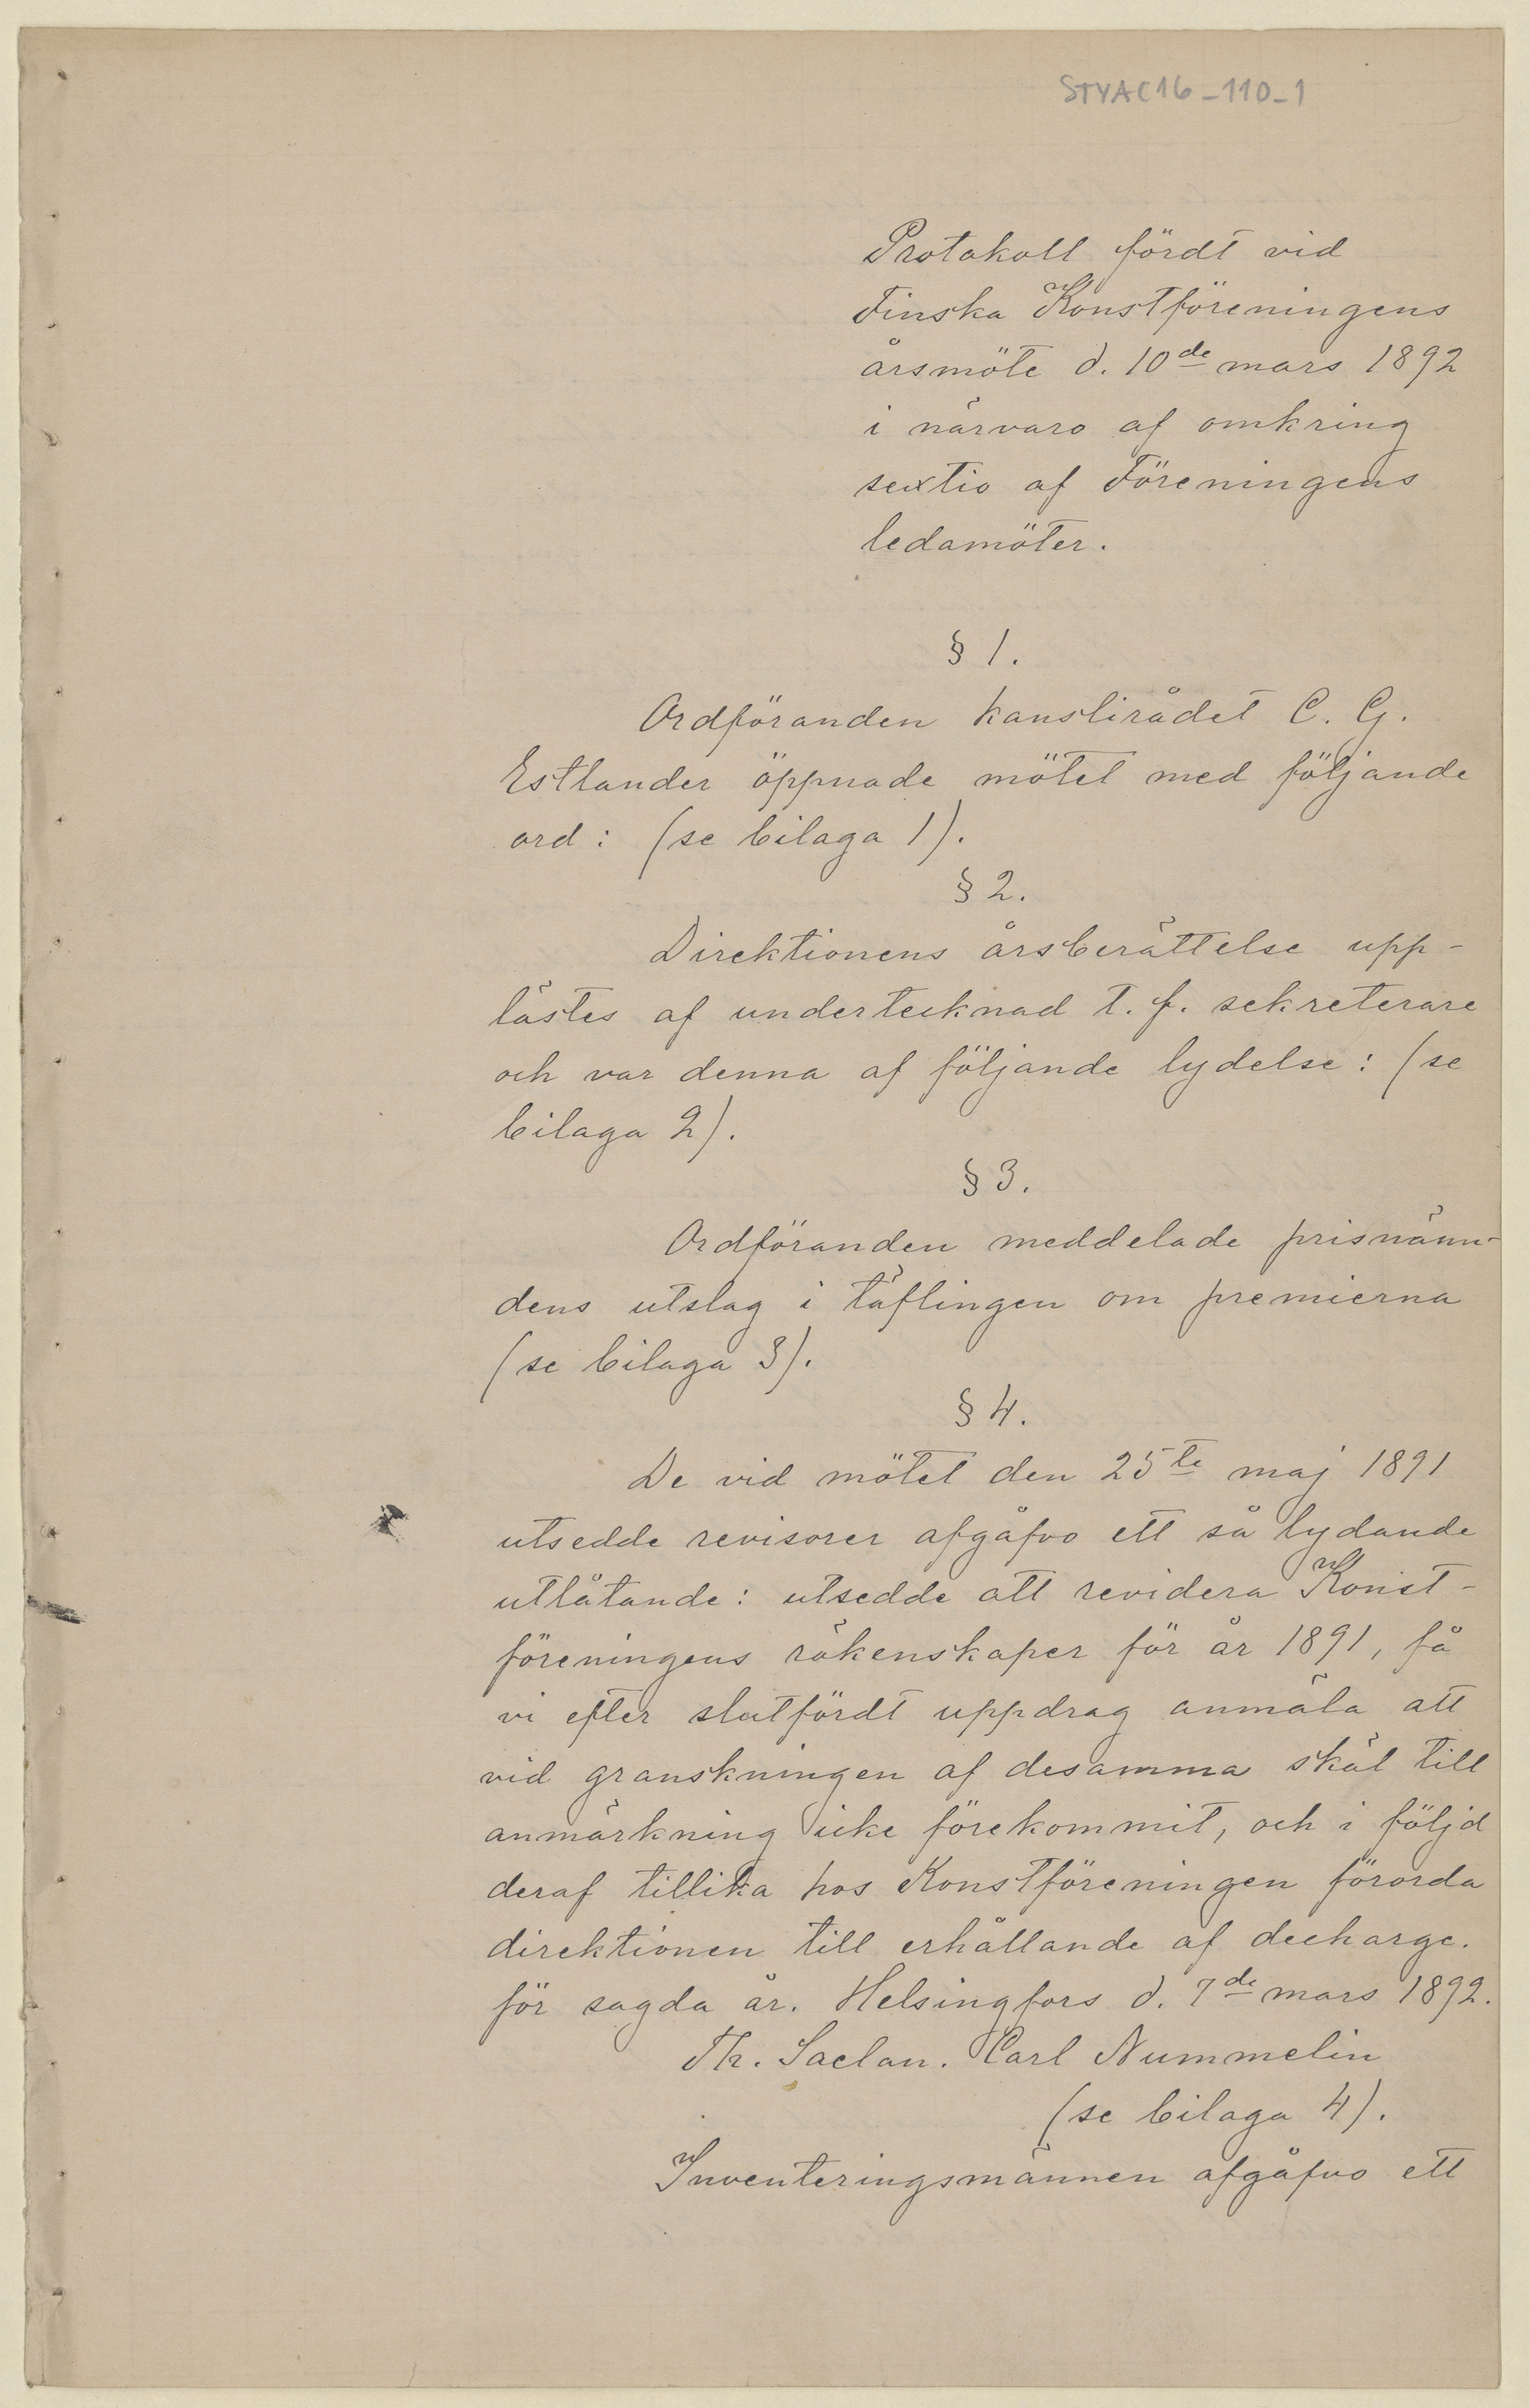 STYAC16-110-1
Protokoll fördt vid
Finska Konstföreningens
årsmöte d. 10de mars 1892
i närvaro af omkring
sextio af Föreningens
ledamöter.
§ 1.
Ordföranden kanslirådet C. G.
Estlander öppnade mötet med följande
ord: (se bilaga 1).
§ 2.
Direktionens årsberättelse upp-
lästes af undertecknad t. f. sekreterare
och var denna af följande lydelse: (se
bilaga 2).
§ 3.
Ordföranden meddelade prisnämn-
dens utslag i täflingen om premierna
(se bilaga 3).
§ 4.
De vid mötet den 25te maj 1891
utsedde revisorer afgåfvo ett så lydande
utlåtande: utsedde att revidera Konst-
föreningens räkenskaper för år 1891, få
vi efter slutfördt uppdrag anmäla att
vid granskningen af desamma skäl till
anmärkning icke förekommit, och i följd
deraf tillika hos Konstföreningen förorda
direktionen till erhållande af decharge.
för sagda år. Helsingfors d. 7de mars 1892.
Th. Saelan. Carl Nummelin
(se bilaga 4).
Inventeringsmännen afgåfvo ett